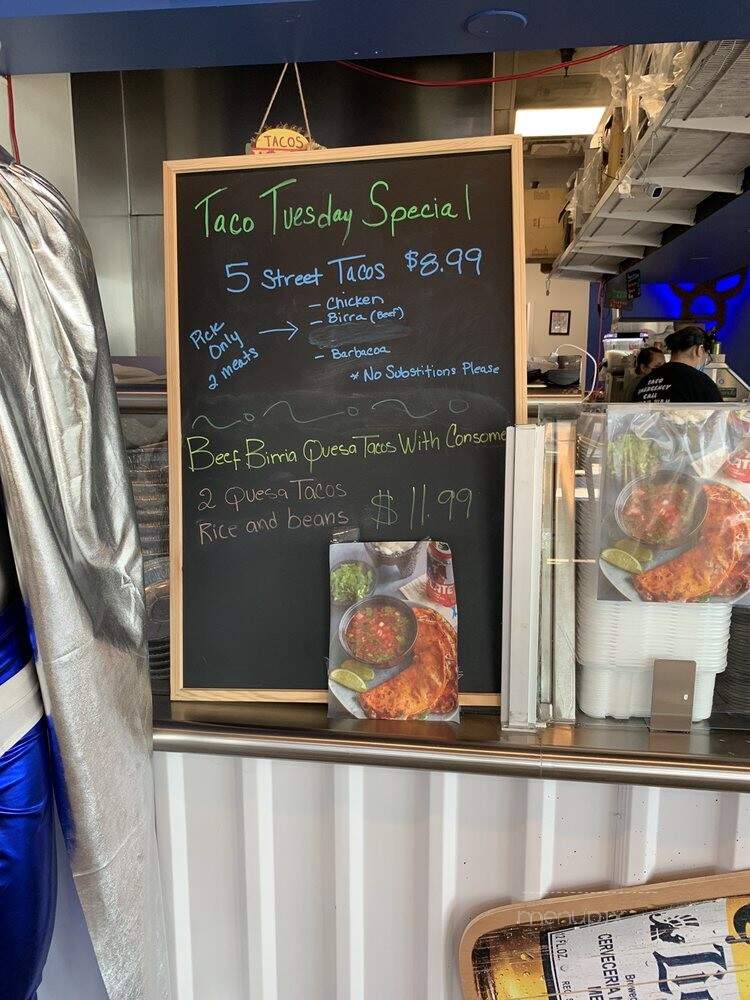 TACOS
Taco Tuesday Special
5 Street Tacos $8.99
Pick
Only
2 meats
- Chicken
- Birra (Beef)
- Barbacoa
* No Substitions Please
Beef Birria Quesa Tacos With Consome
2 Quesa Tacos
Rice and beans $11.99
TACO
EMERGENCY
CALL
menupix
12 FL OZ
CERVECERIA
Brewed